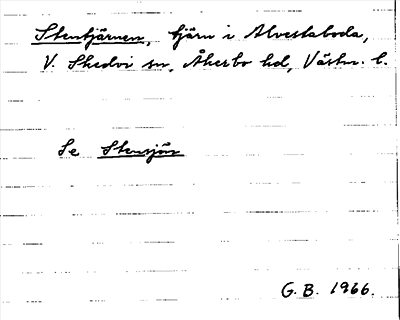 Stentjärnen, tjärn i Alvestaboda,
V. Skedvi sn, Åkerbo hd, Västm. l.
Se Stensjön
G.B. 1966.